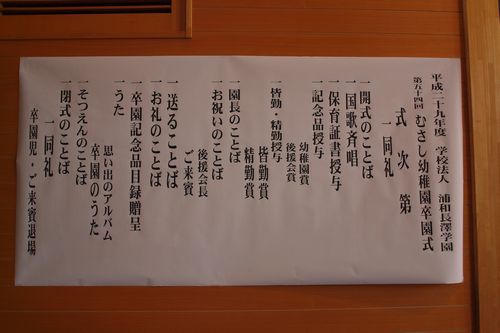 平成二十九年度　学校法人　浦和長澤学園
第五十四回　むさし幼稚園卒園式
式次第
一同礼
一開式のことば
一国歌斉唱
一保育証書授与
一記念品授与
幼稚園賞
後援会賞
一皆勤・精勤授与
皆勤賞
精勤賞
一園長のことば
一お祝いのことば
後援会長
ご来賓
一送ることば
一お礼のことば
一卒園記念品目録贈呈
一うた
思い出のアルバム
卒園のうた
一そつえんのことば
一閉式のことば
一同礼
卒園児・ご来賓退場